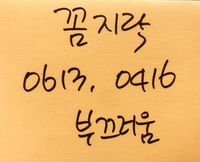 꼼지락
0613, 0416
부끄러움